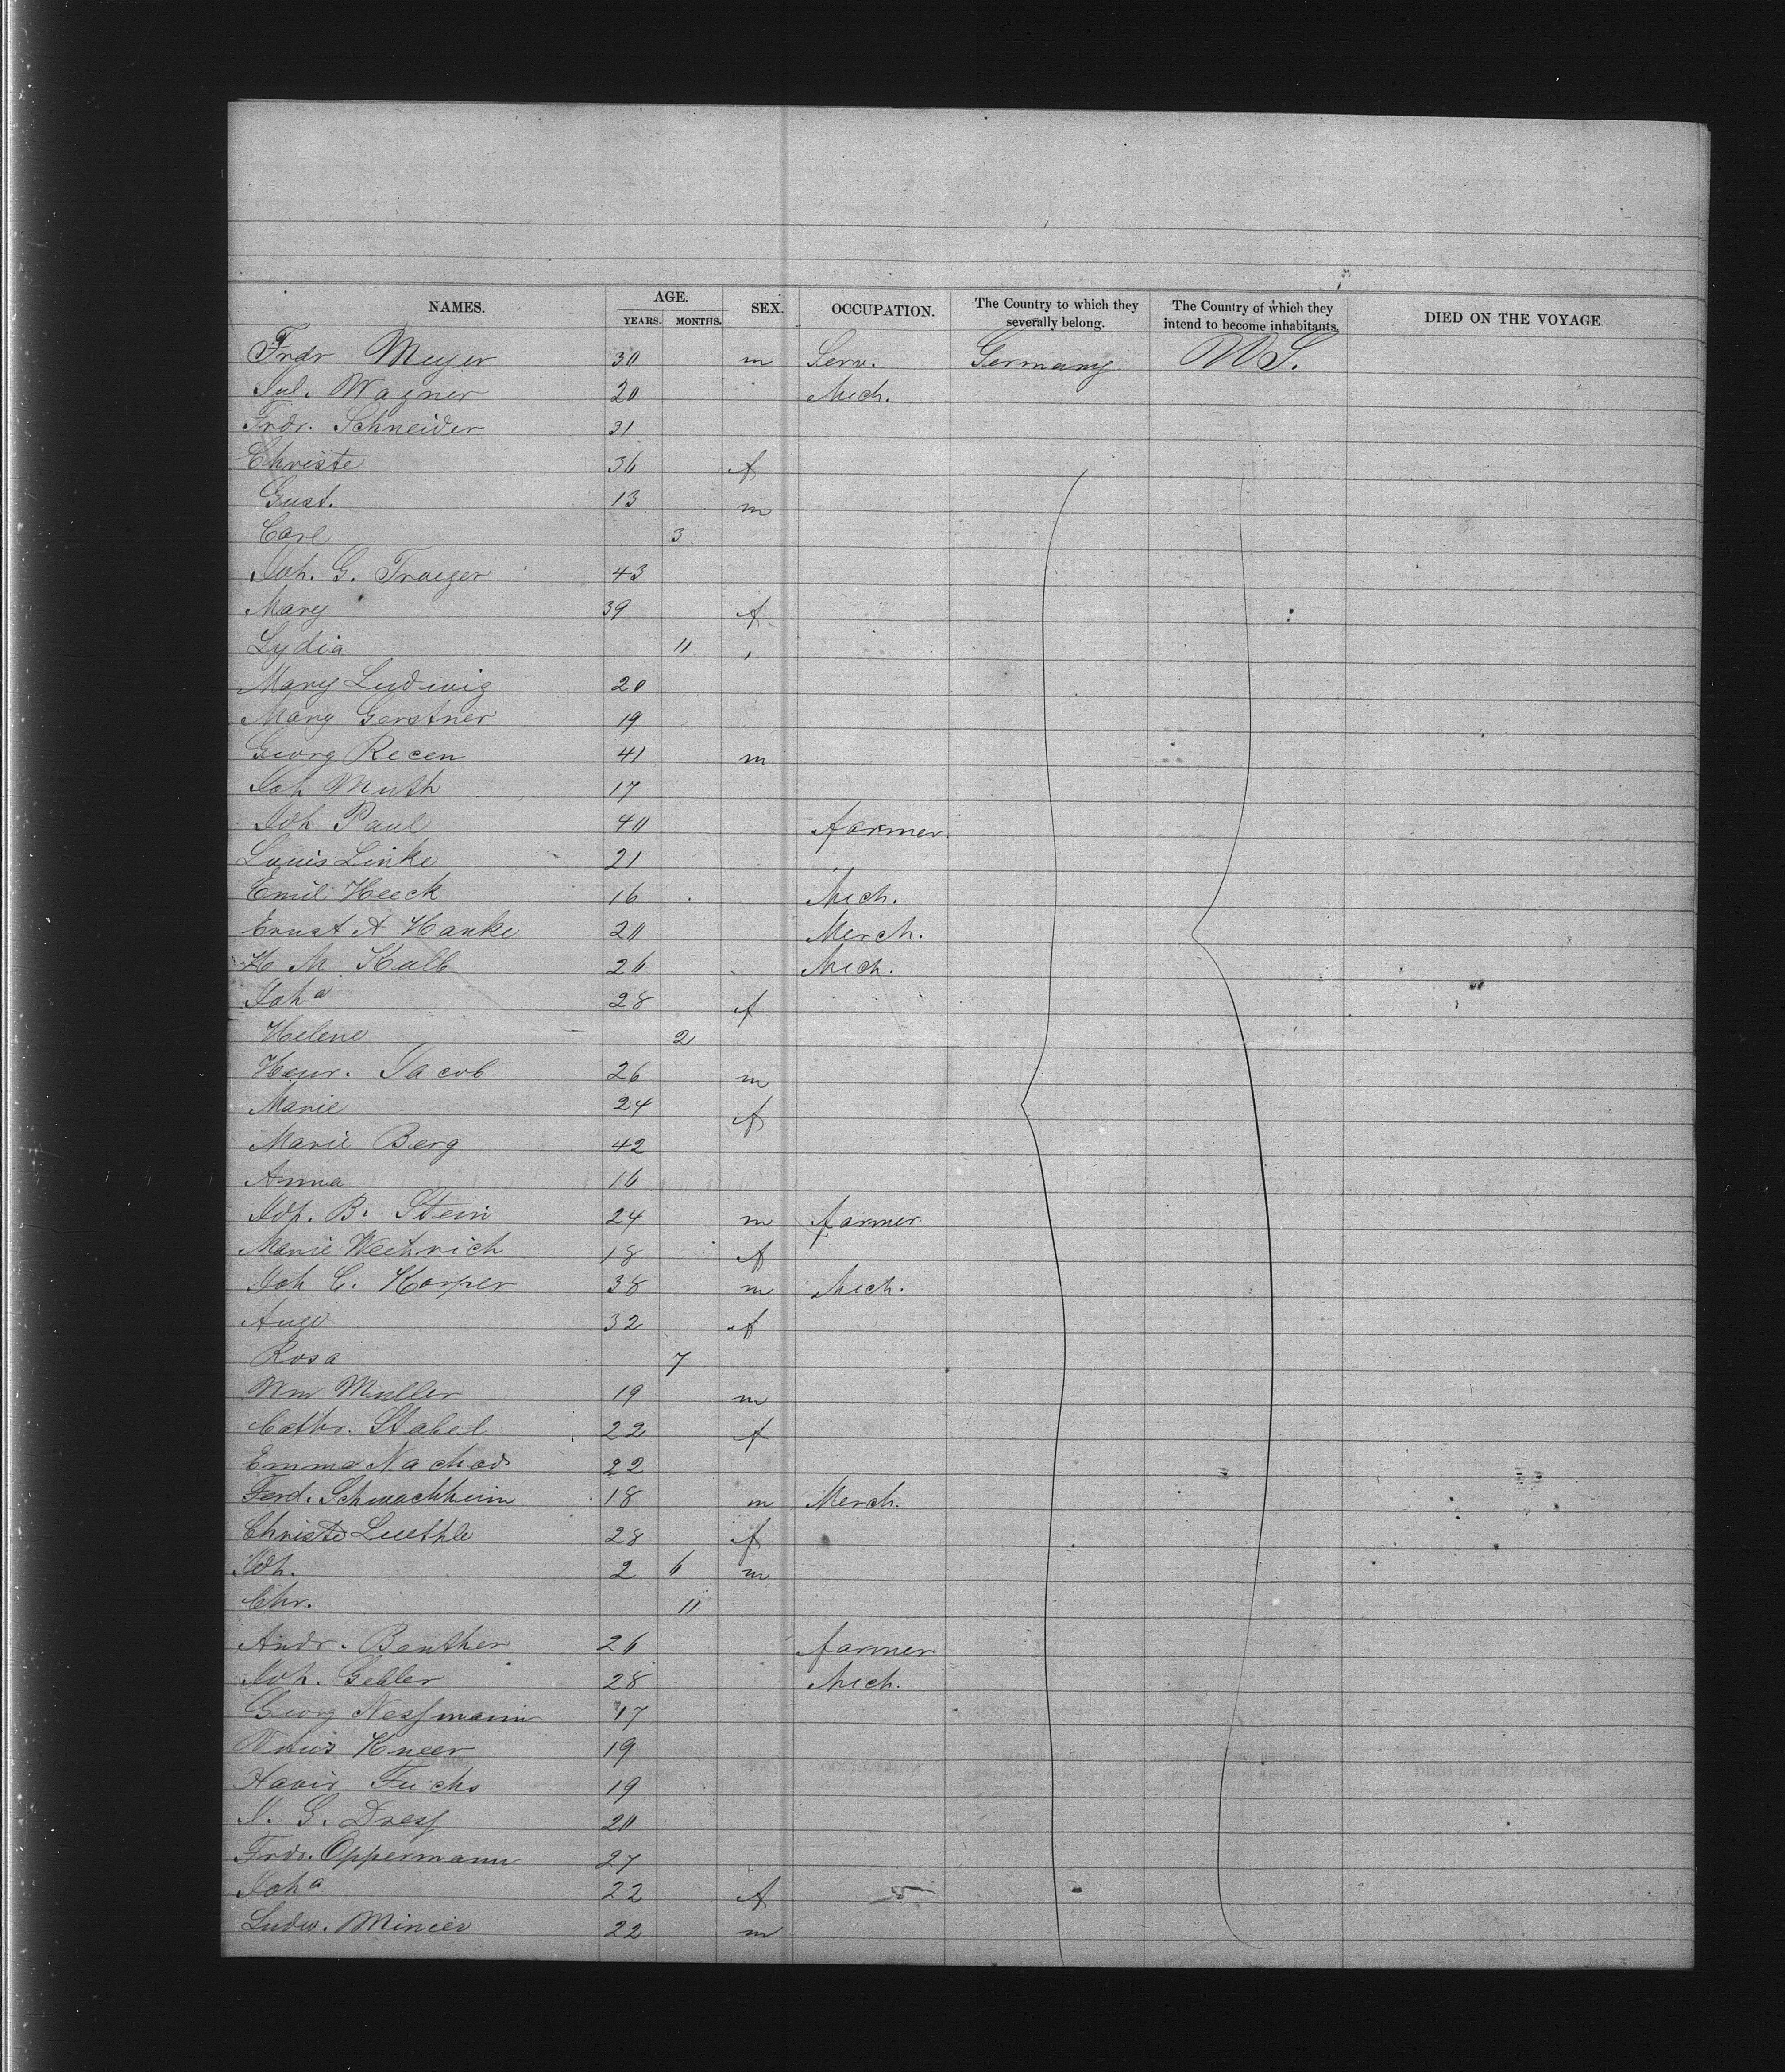 NAMES. AGE. SEX. OCCUPATION. The Country to which they severally belong. The Country of which they intend to become inhabitants. DIED ON THE VOYAGE
YEARS. MONTHS.
Frdr Meyer 30 m Serv. Germany U S.
Jul. Wagner 20 Mech.
Frdr. Schneider 31
Christe 36 f
Gust. 13 m
Carl 3
Joh. G. Traeger 43
Mary 39 f
Lydia 11 "
Mary Ludwig 20
Mary Gerstner 19
Georg Recen 41 m
Joh Muth 17
Joh Paul 40 farmer
Louis Linke 21
Emil Heeck 16 Mech.
Ernst A Hanke 20 Merch.
H M Kalb 26 Mech.
Joha 28 f
Helene 2
Henr. Jacob 26 m
Marie 24 f
Marie Berg 42
Anna 16
Jos. B. Stein 24 m farmer
Marie Weihrich 18 f
Joh C. Karper 38 m Mech.
Auge 32 f
Rosa 7
Wm Muller 19 m
Cathr. Stabel 22 f
Emma Nachod 22
Ferd. Schwachheim 18 m Merch.
Christe Luethle 28 f
Joh. 2 6 m
Chr. 11
Andr. Benther 26 farmer
Joh. Gebler 28 Mech.
Georg Nessmann 17
Kneer 19
Xavir Fuchs 19
J. G. Dress 20
Frdr. Oppermann 27
Joha 22 f
Ludw. Minier 22 m